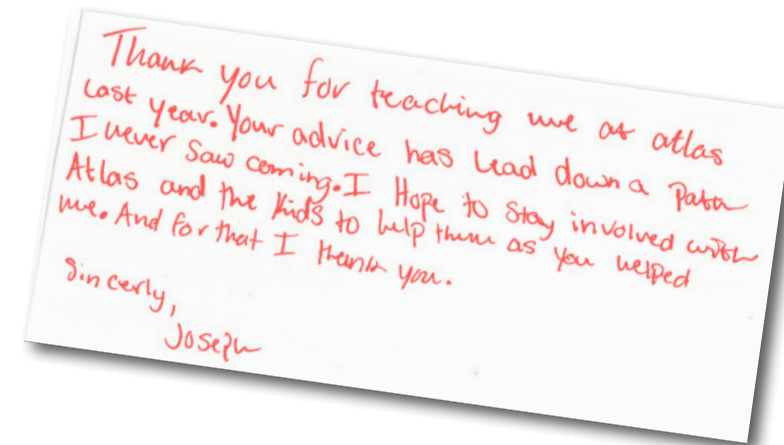 Thank you for teaching me at atlas
Last year. Your advice has lead down a Path
I never Saw coming. I Hope to Stay involved with
Atlas and the kids to help them as you helped
me. And for that I thank you.
Sincerly,
Joseph